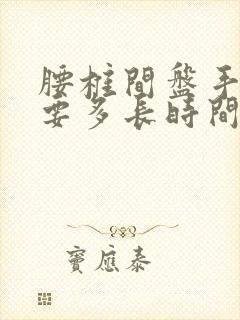 腰椎間盤手
要多長時間
竇應泰